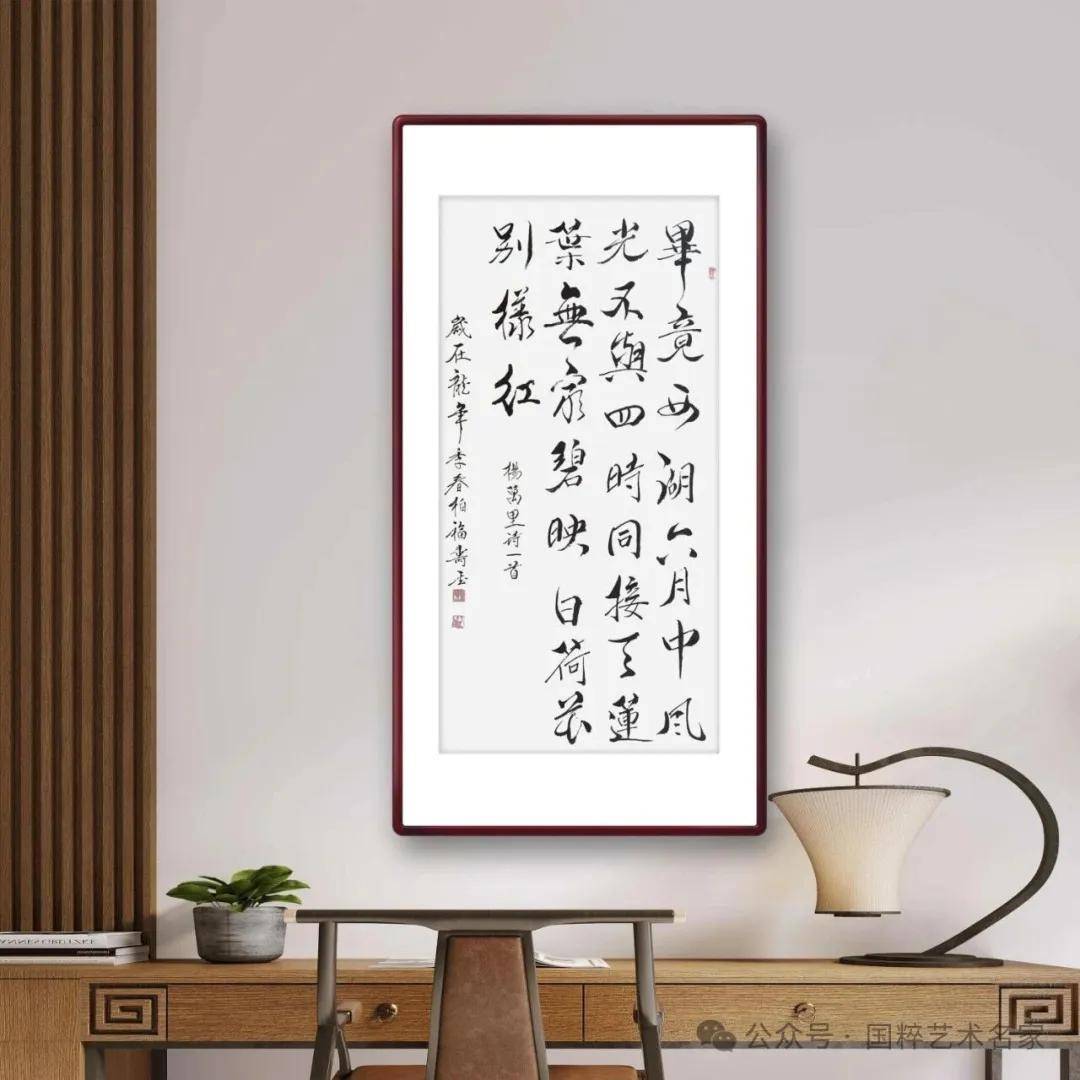 畢竟西湖六月中風
光不與四時同接天蓮
葉無窮碧映日荷花
別樣紅
楊萬里诗一首
歲在龍年季春柏福壽書
公众号·国粹艺术名家